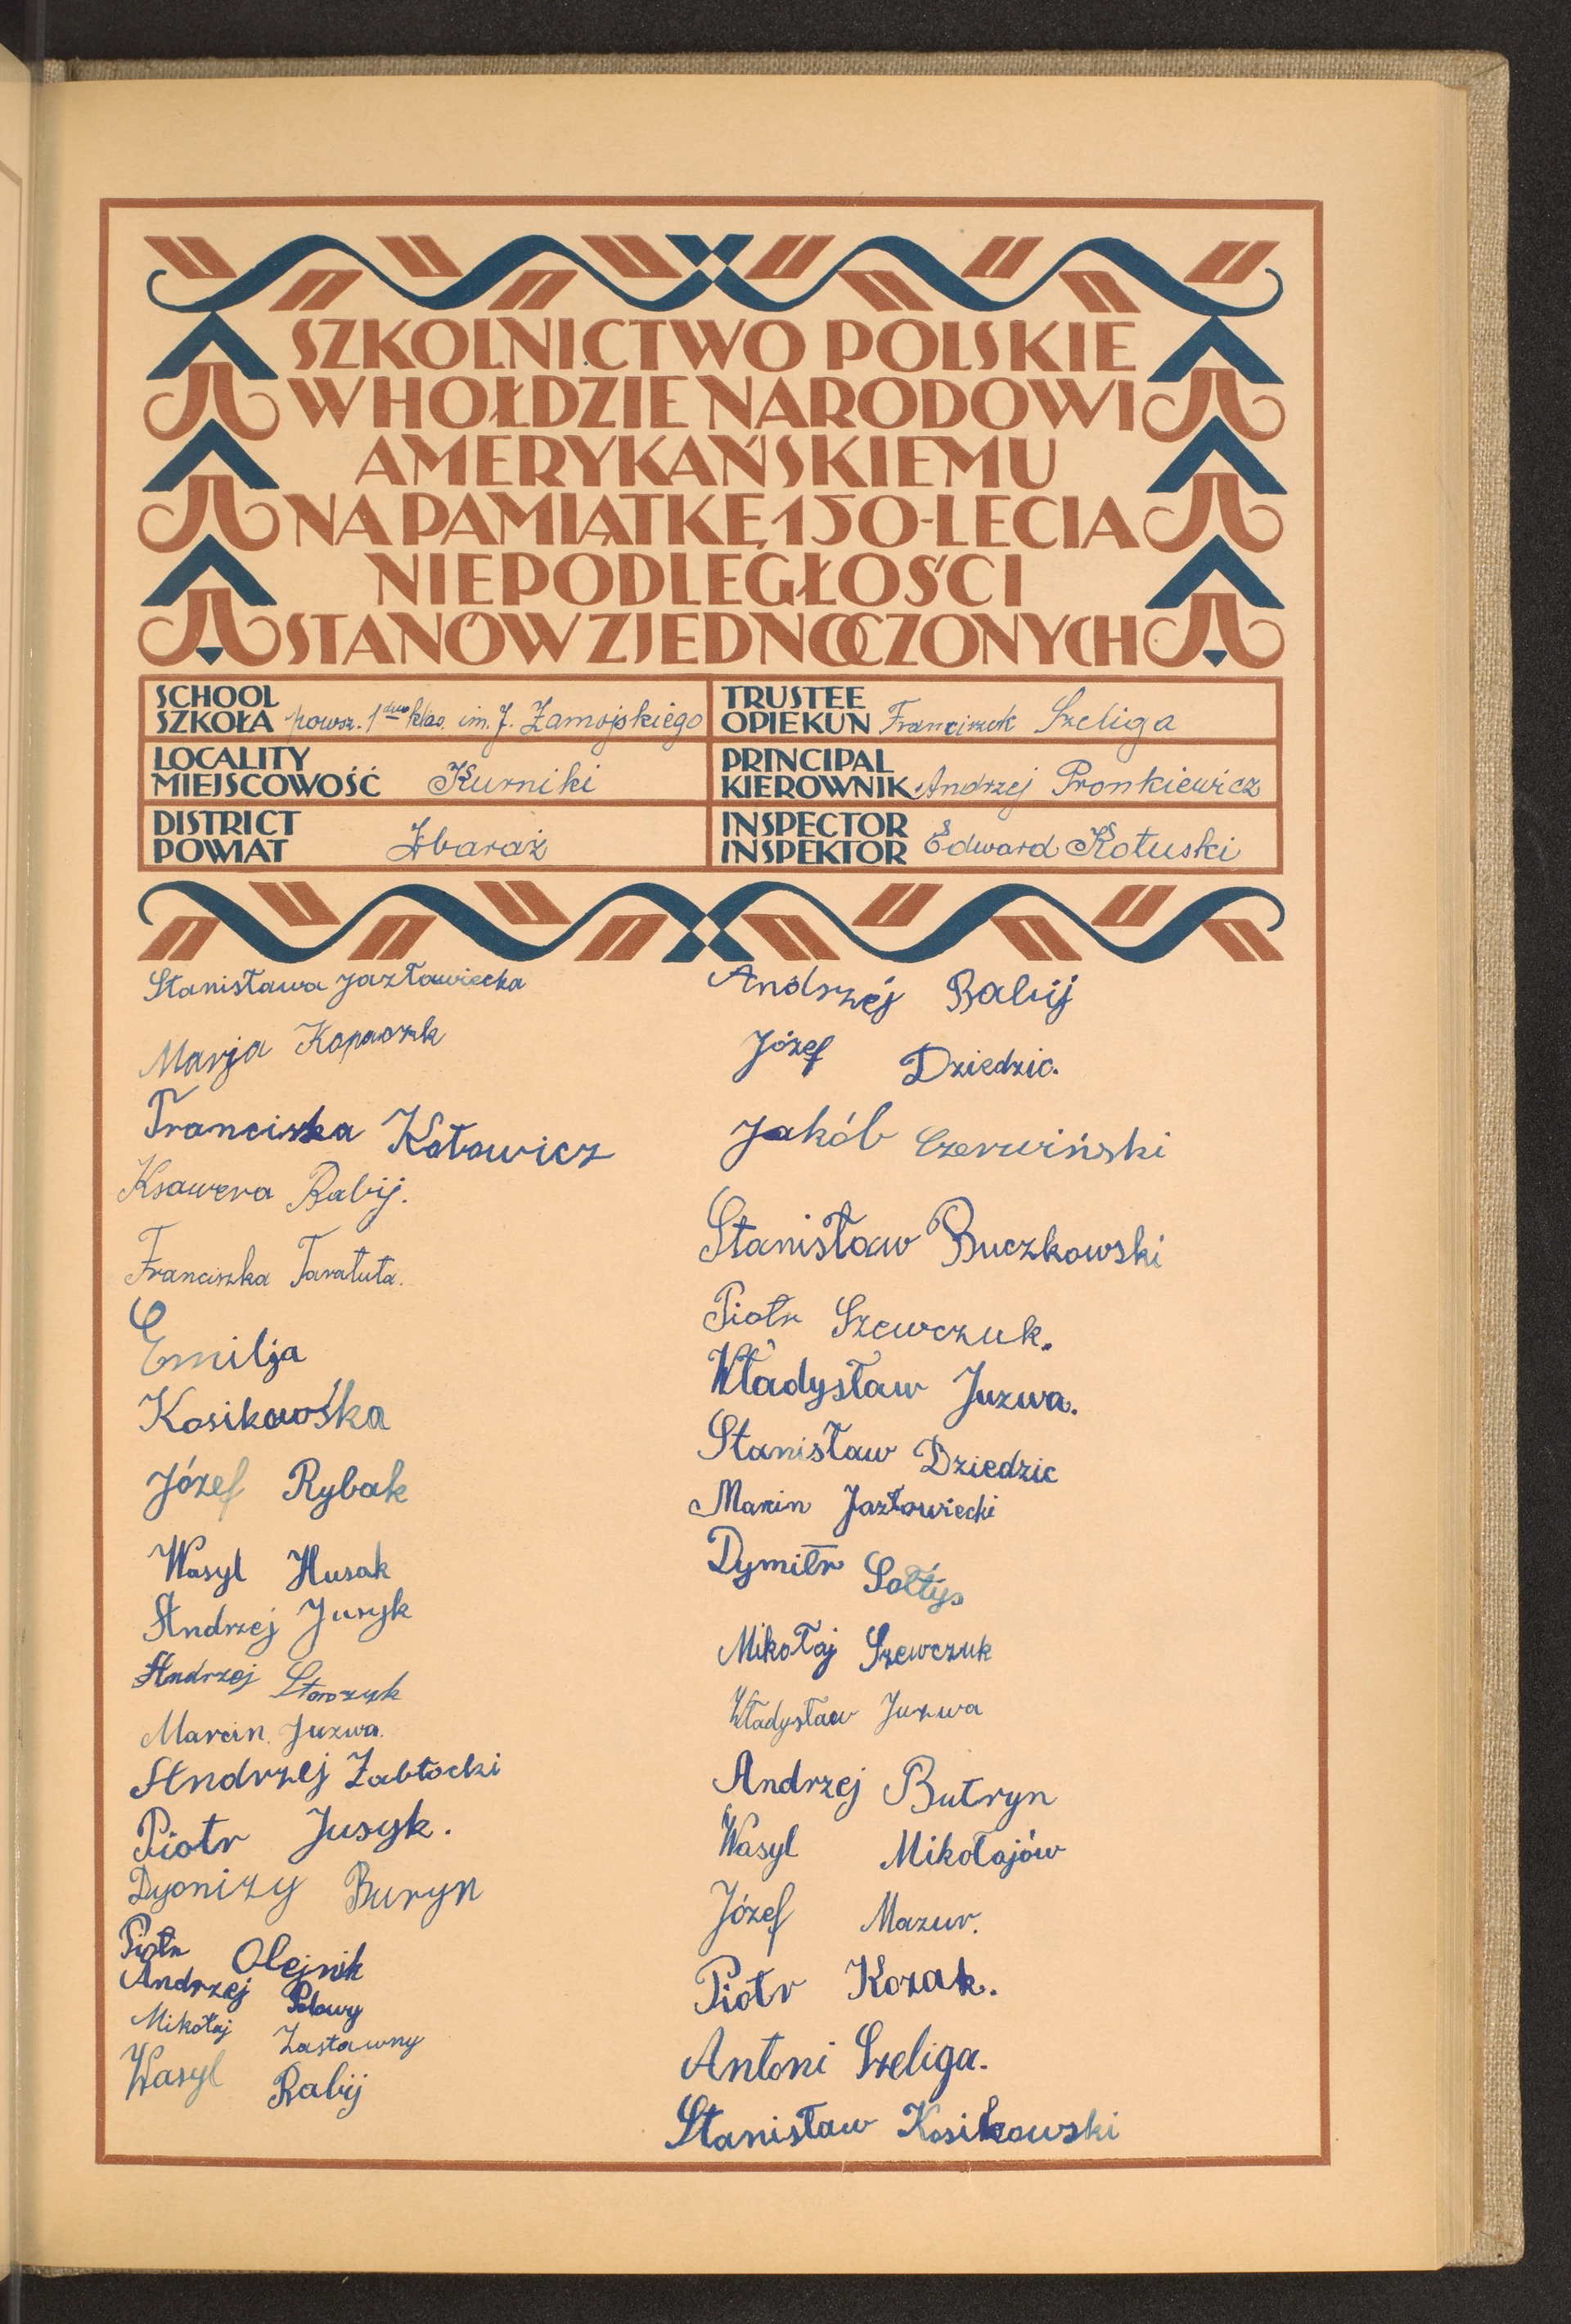 SZKOLNICTWO POLSKIE
W HOŁDZIE NARODOWI
AMERYKAŃSKIEMU
NA PAMIĄTKĘ 150-LECIA
NIEPODLEGŁOŚCI
STANÓW ZJEDNOCZONYCH
SCHOOL
SZKOŁA powsz. 1 klas. im. J. Zamojskiego
TRUSTEE
OPIEKUN Franciszek Szeliga
LOCALITY
MIEJSCOWOŚĆ Kurniki
PRINCIPAL
KIEROWNIK Andrzej Pronkiewicz
DISTRICT
POWIAT Zbaraż
INSPECTOR
INSPEKTOR Edward Kotuski
Stanisława Jazławiecka
Marja Kopaczuk
Franciszka Kotowicz
Ksawera Babij.
Franciszka Taratuta.
Emilja
Kosikowśka
Józef Rybak
Wasyl Husak
Andrzej Jusyk
Andrzej
Marcin Juzwa.
Andrzej Zabłocki
Piotr Jusyk.
Dyonizy Buryn
Piotr Olejnik
Andrzej Polowy
Mikołaj Zastawny
Wasyl Babij
Andrzej Babij
Józef Dziedzic.
Jakób Czerwiński
Stanisław Buczkowski
Piotr Szewczuk.
Władysław Juzwa.
Stanisław Dziedzic
Marcin Jazłowiecki
Dymitr Sołtys
Mikołaj Szewczuk
Władysław Juzwa
Andrzej Butryn
Wasyl Mikołajów
Józef Mazur.
Piotr Kozak.
Antoni Szeliga.
Stanisław Kosikowski